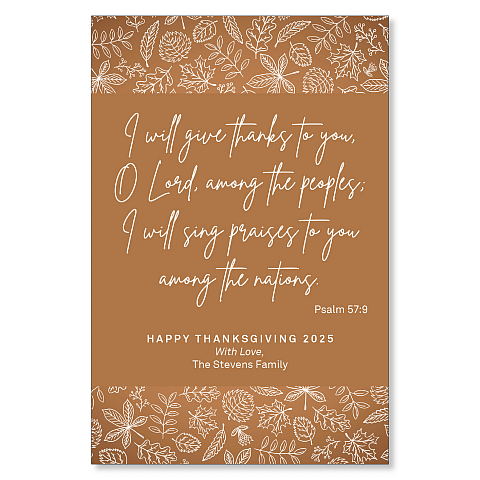 I will give thanks to you,
O Lord, among the peoples;
I will sing praises to you
among the nations.
Psalm 57:9
HAPPY THANKSGIVING 2025
With Love,
The Stevens Family